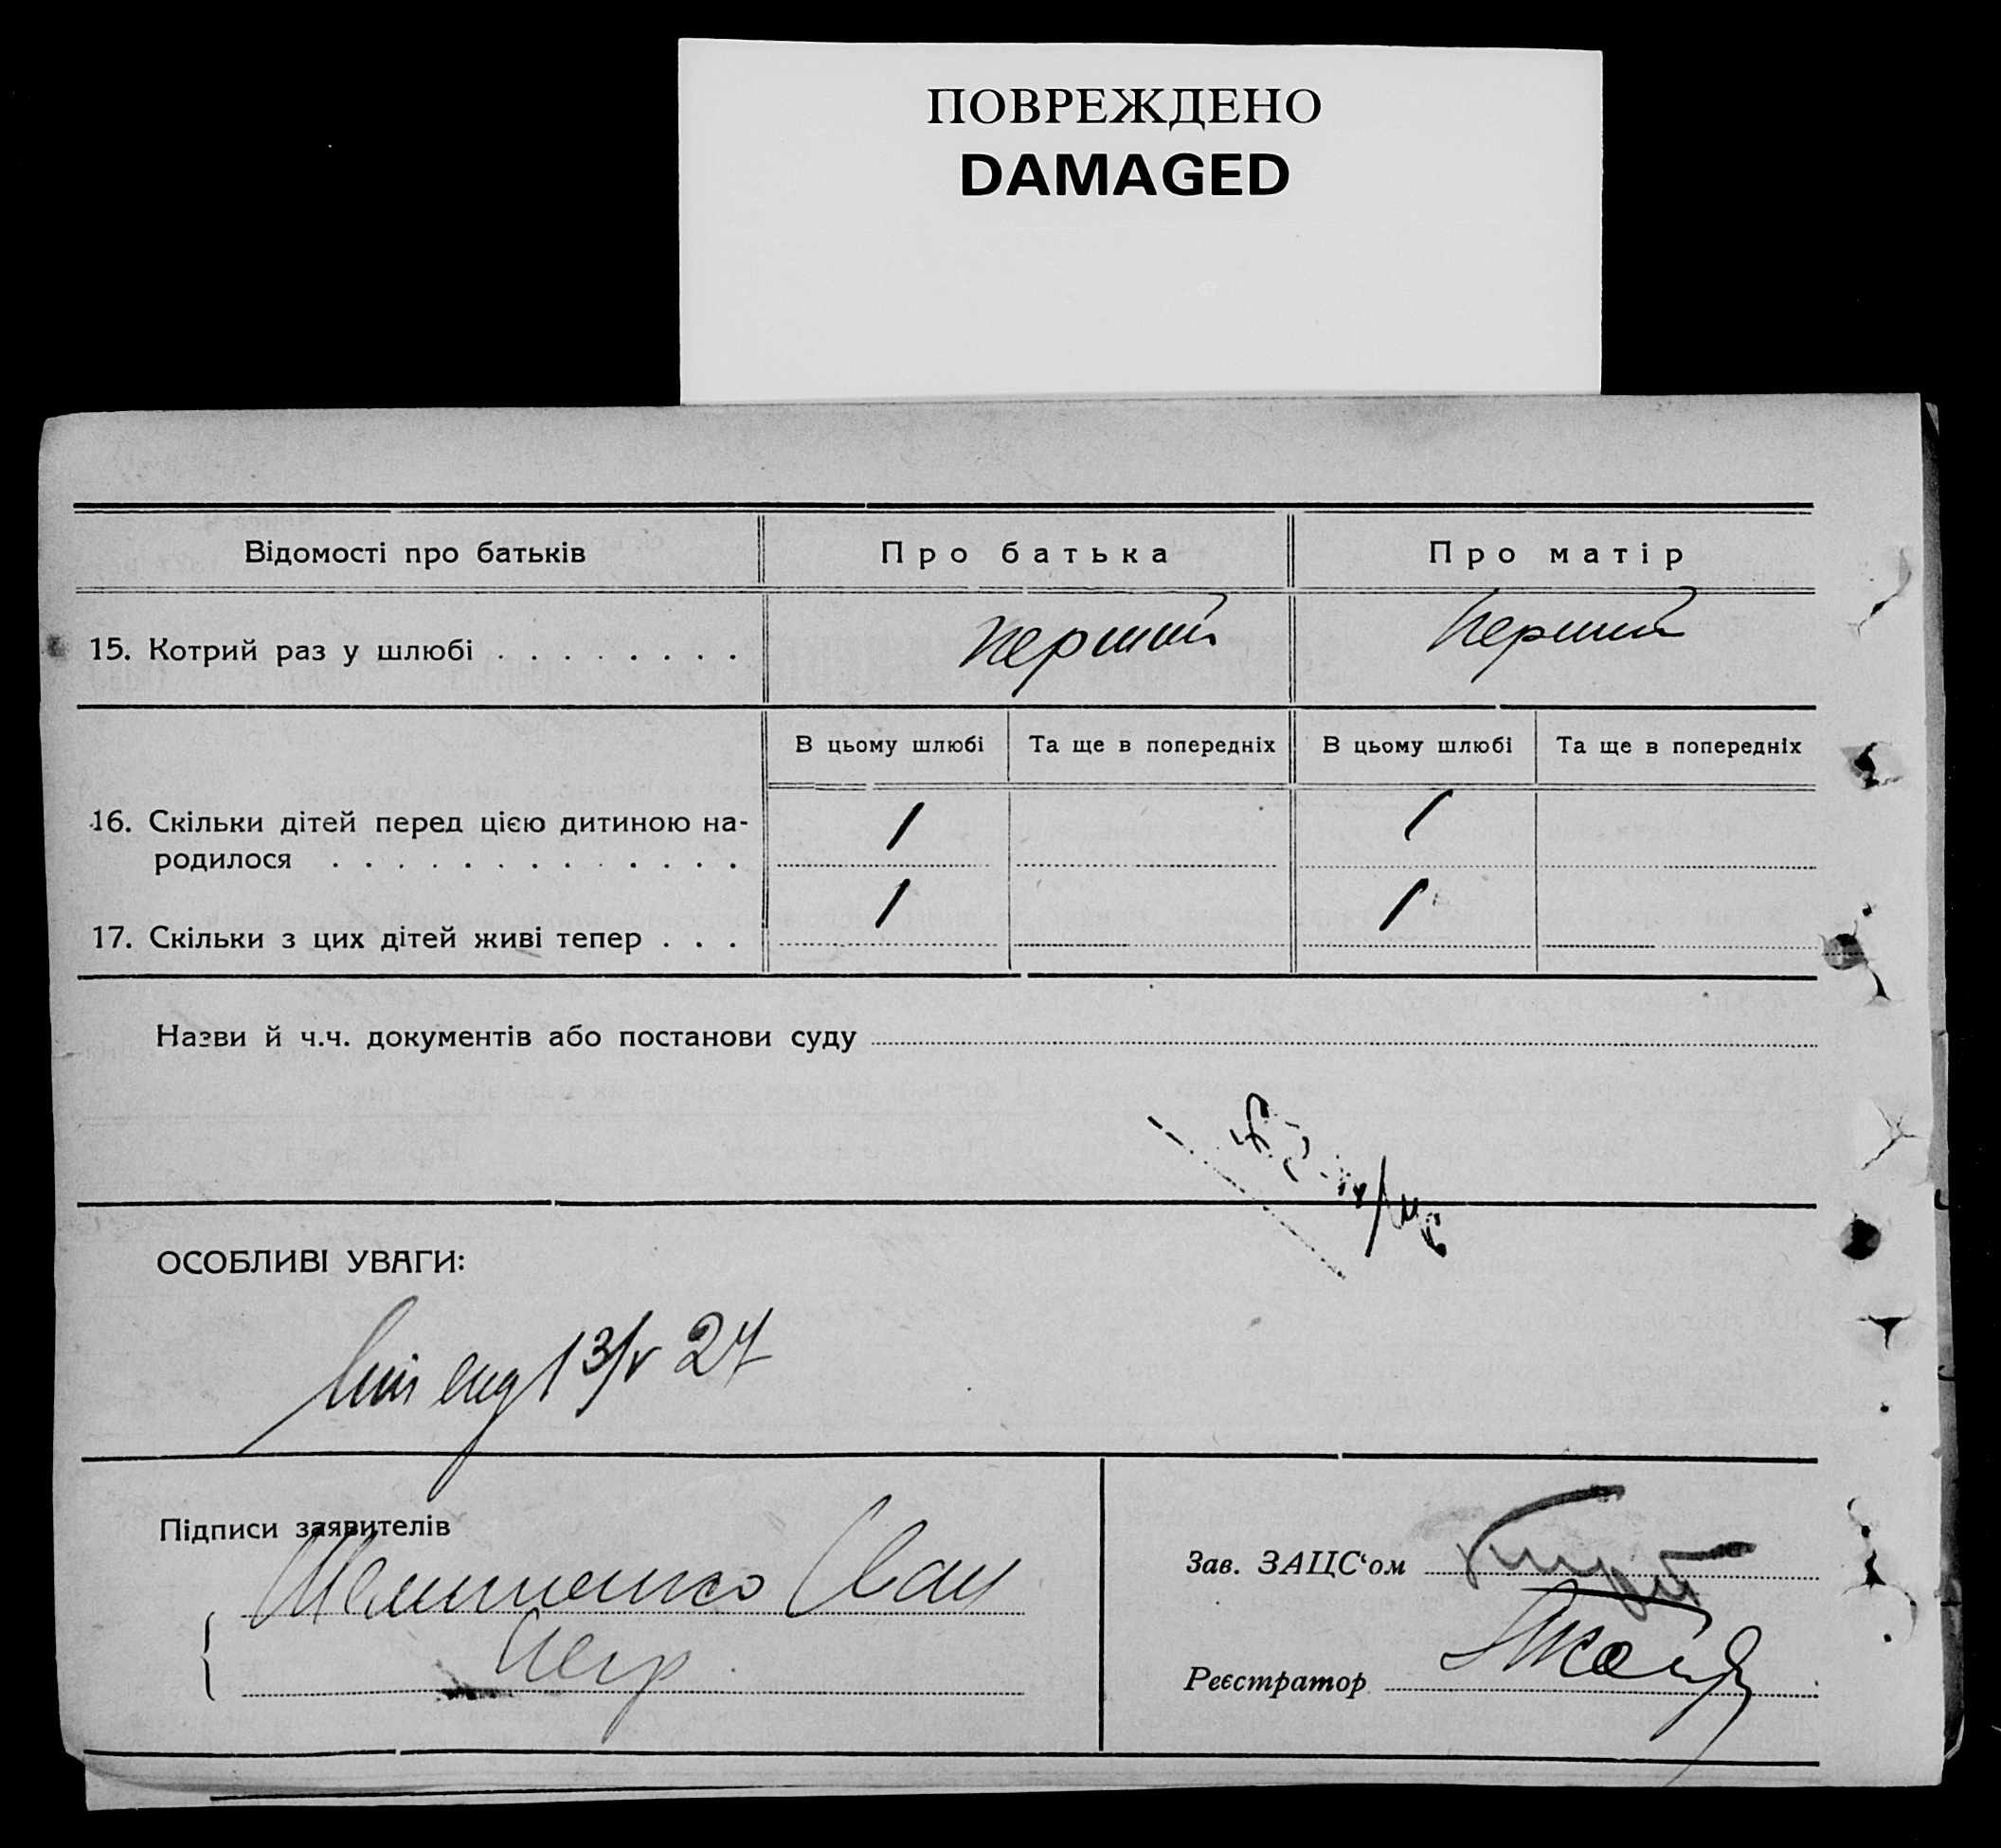 ПОВРЕЖДЕНО
DAMAGED
Відомості про батьків
Про батька
Про матір
15. Котрий раз у шлюбі . . . . . . . .
перший
перший
В цьому шлюбі
Та ще в попередніх
В цьому шлюбі
Та ще в попередніх
16. Скільки дітей перед цією дитиною на-
родилося . . . . . . . . . . . . .
1
1
17. Скільки з цих дітей живі тепер . . .
1
1
Назви й ч.ч. документів або постанови суду
ОСОБЛИВІ УВАГИ:
13/V 27
Підписи заявителів
Іван
Зав. ЗАЦС‘ом
Реєстратор